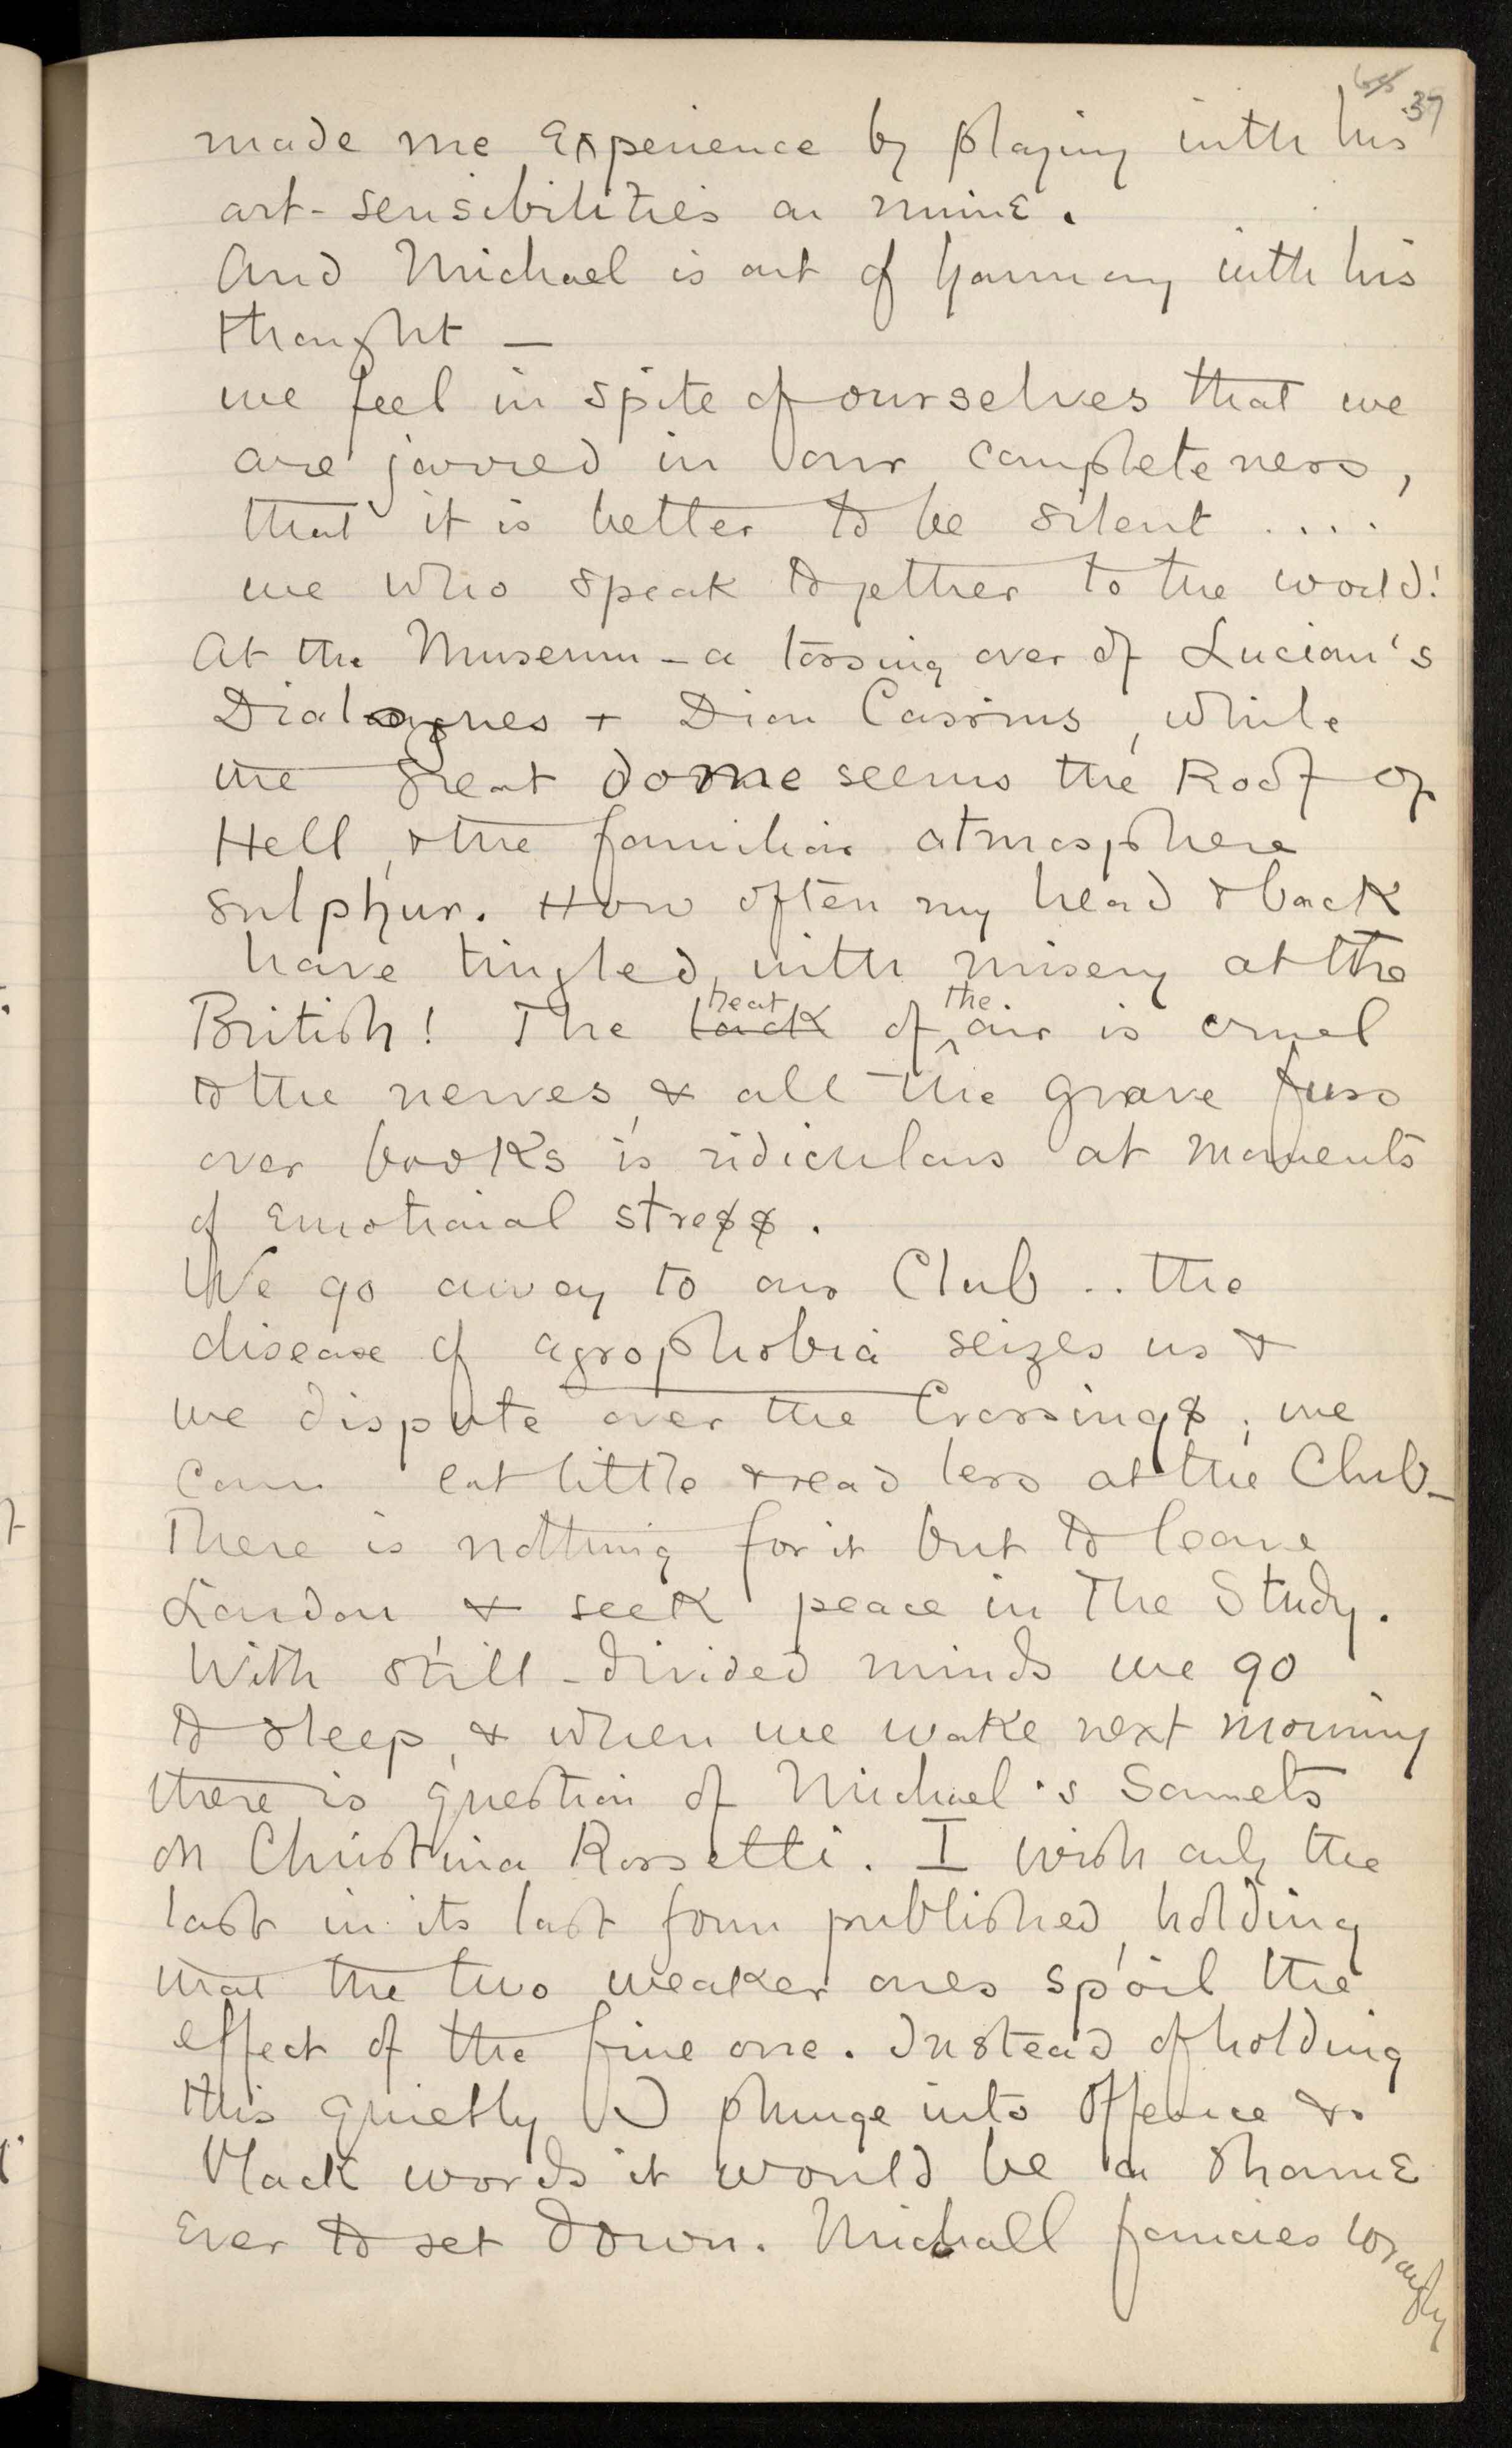 37
made me experience by playing with his
art-sensibilities on mine.
And Michael is out of harmony with his
thought —
we feel in spite of ourselves that we
are jarred in our completeness,
that it is better to be silent ....
we who speak together to the world!
At the Museum - a tossing over of Lucian's
Dialogues + Dion Cassius, while
the great dome seems the Roof of
Hell, & the familiar atmosphere
sulphur. How often my head & back
have tingled with misery at the
British! The back heat of the air is cruel
to the nerves, & all the grave fuss
over books is ridiculous at moments
of emotional stress.
We go away to our Club .. the
disease of agrophobia seizes us &
we dispute over the Crossings; we
can eat little & read less at the Club_
There is nothing for it but to leave
London, & seek peace in The Study.
With still-divided minds we go
to sleep, & when we wake next morning
there is question of Michael's Sonnets
on Christina Rossetti. I wish only the
last in its last form published, holding
that the two weaker ones spoil the
effect of the fine one. Instead of holding
this quietly I plunge into offence &
black words it would be a shame
ever to set down. Michael fancies wrongly